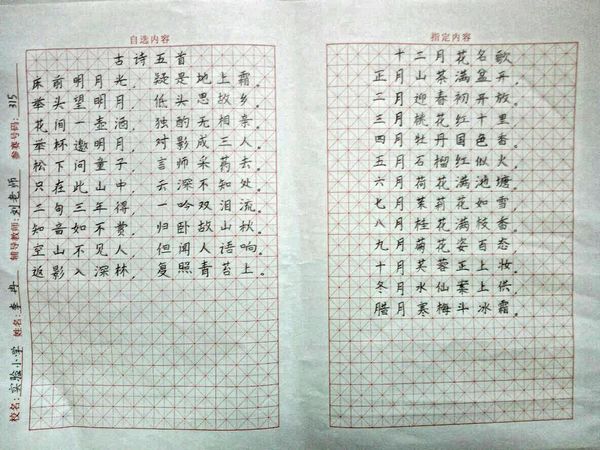 校名：实验小学 姓名：李冉 辅导教师：刘老师 参赛号码：315
自选内容
古诗五首
床前明月光，疑是地上霜。
举头望明月，低头思故乡。
花间一壶酒，独酌无相亲。
举杯邀明月，对影成三人。
松下问童子，言师采药去。
只在此山中，云深不知处。
二句三年得，一吟双泪流。
知音如不赏，归卧故山秋。
空山不见人，但闻人语响。
返影入深林，复照青苔上。
指定内容
十二月花名歌
正月山茶满盆开，
二月迎春初开放。
三月桃花红十里，
四月牡丹国色香。
五月石榴红似火，
六月荷花满池塘。
七月茉莉花如雪，
八月桂花满枝香。
九月菊花姿百态，
十月芙蓉正上妆。
冬月水仙案上供，
腊月寒梅斗冰霜。